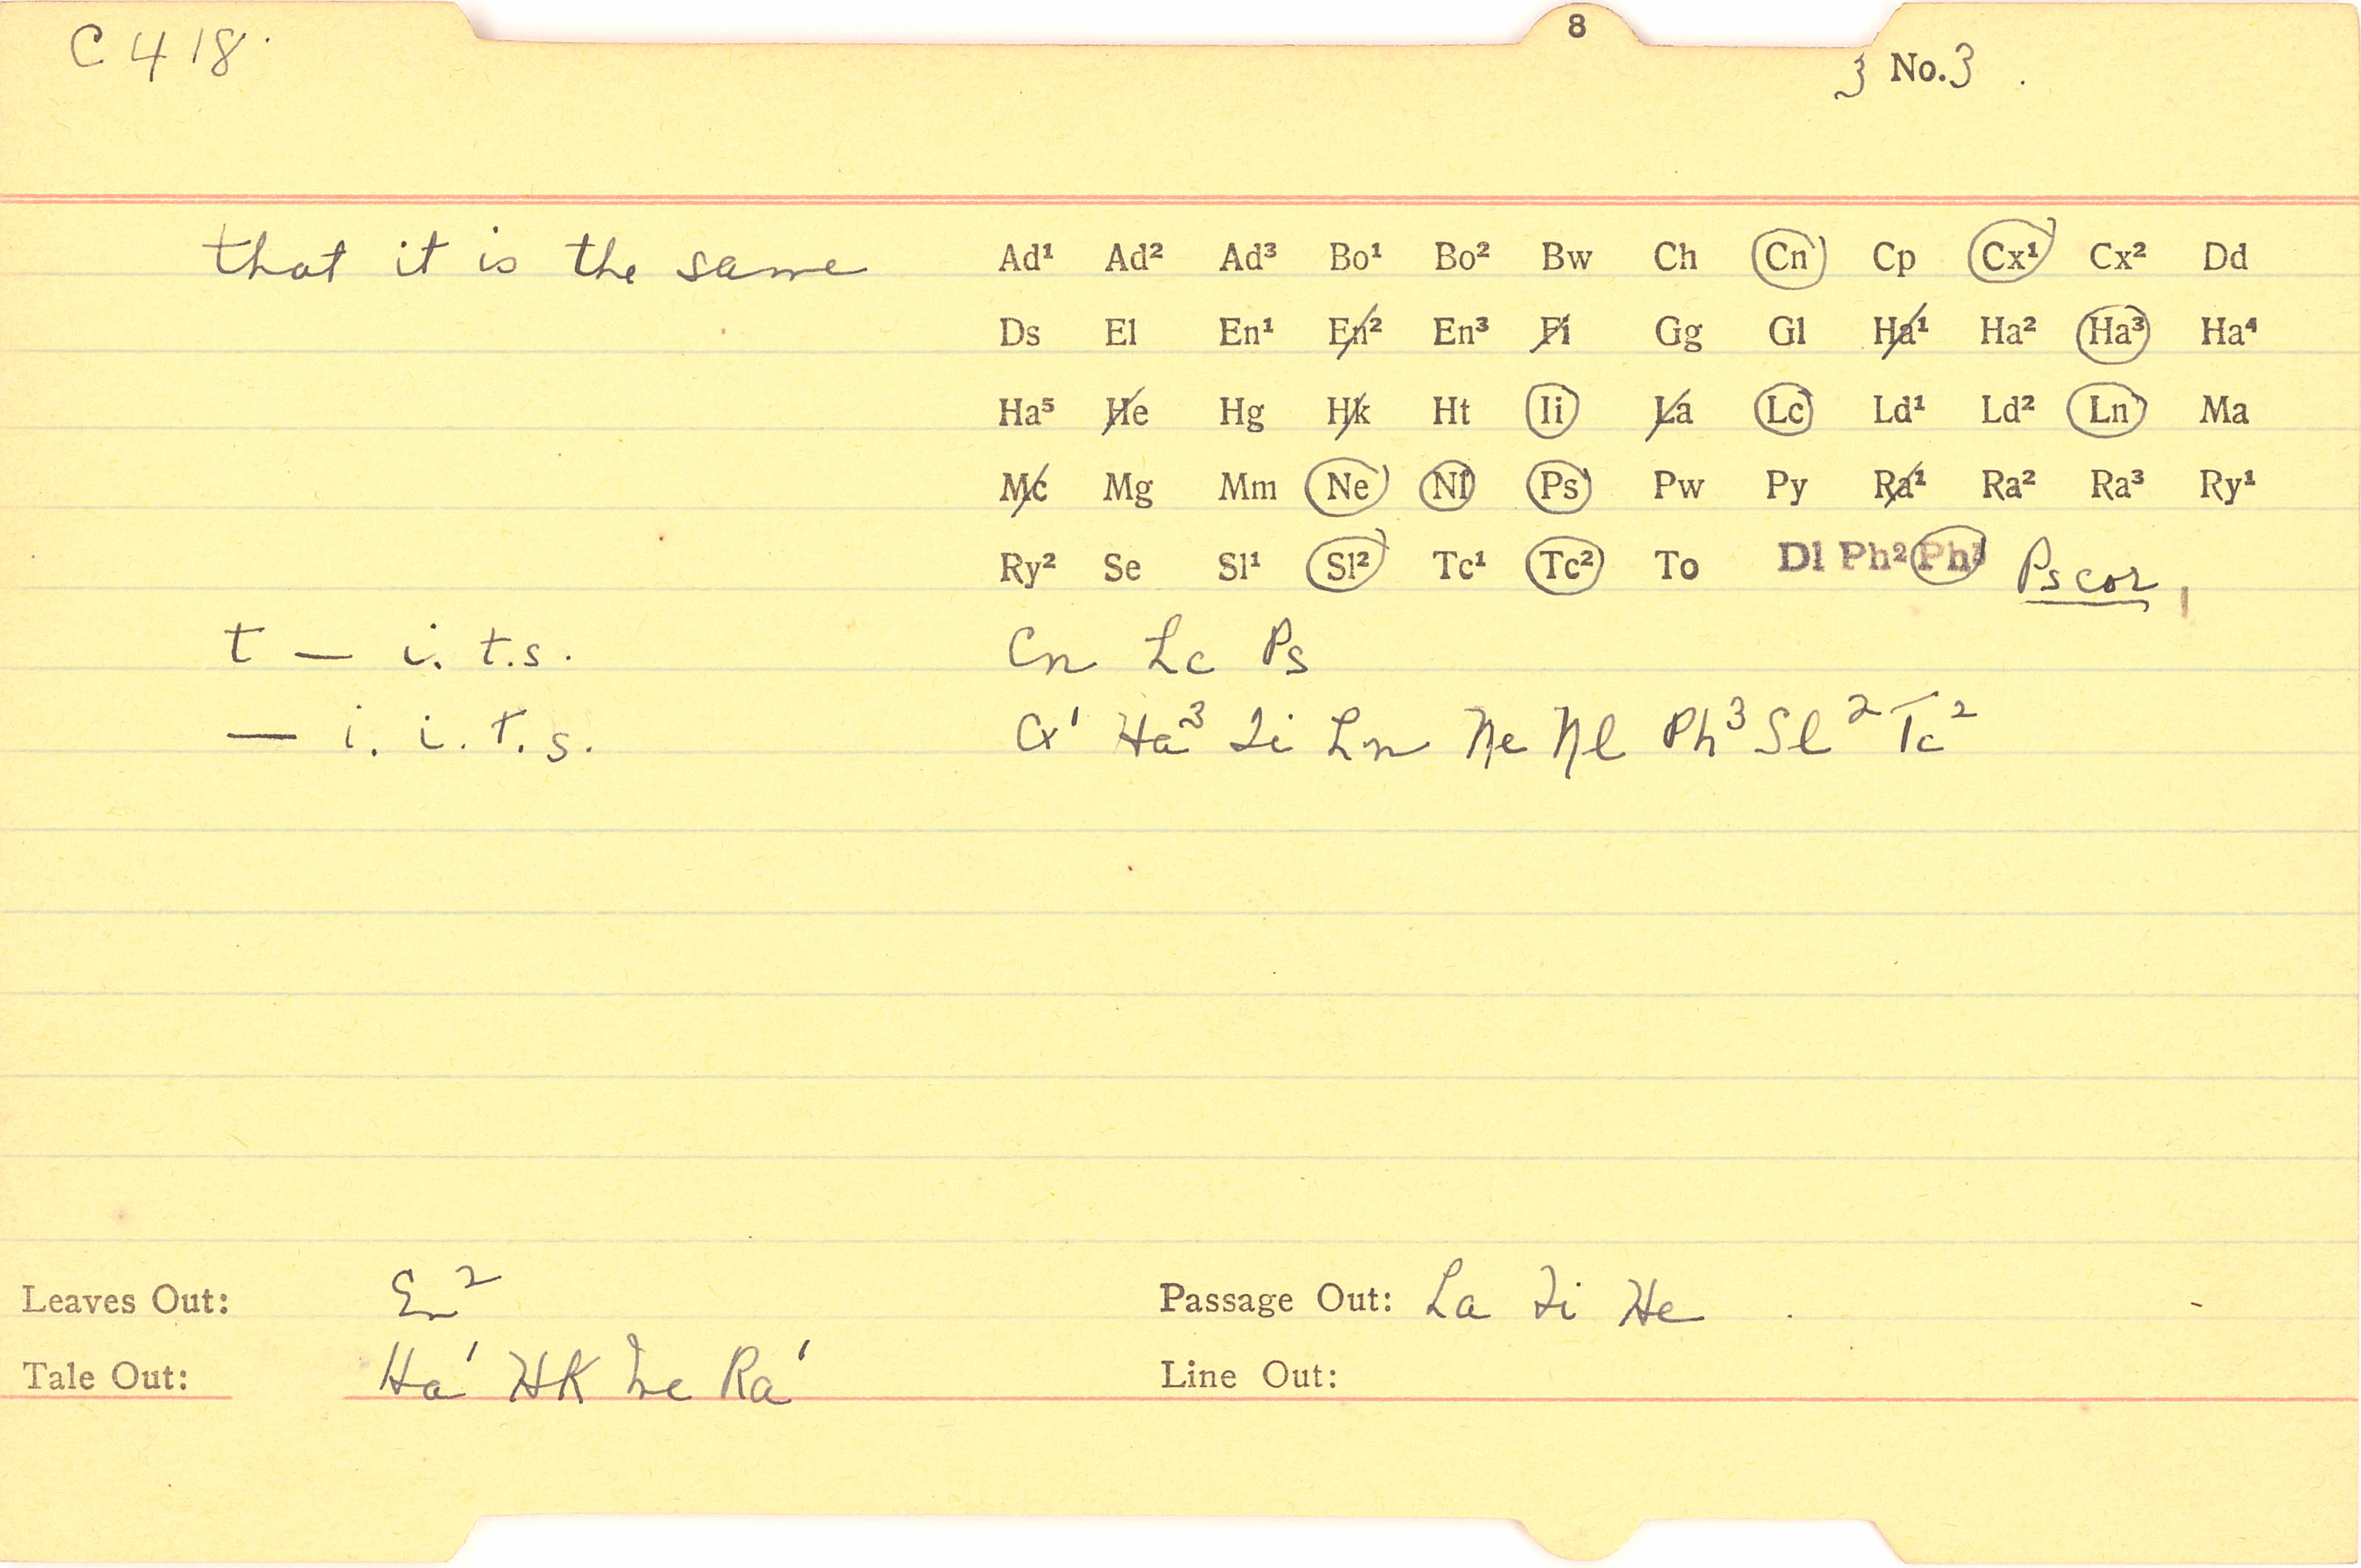 C 418.
8
3 No. 3 .
that it is the same Ad¹ Ad² Ad³ Bo¹ Bo² Bw Ch Cn Cp Cx¹ Cx² Dd
Ds El En¹ En² En³ Fi Gg Gl Ha¹ Ha² Ha³ Ha⁴
Ha⁵ He Hg Hk Ht Ii La Lc Ld¹ Ld² Ln Ma
Mc Mg Mm Ne Nl Ps Pw Py Ra¹ Ra² Ra³ Ry¹
Ry² Se Sl¹ Sl² Tc¹ Tc² To Dl Ph² Ph³ Ps cor
t — i. t.s. Cn Lc Ps
— i. i. t. s. Cx¹ Ha³ Ii Ln Ne Nl Ph³ Sl² Tc²
Leaves Out: En² Passage Out: La Fi He
Tale Out: Ha¹ Hk Mc Ra¹ Line Out: